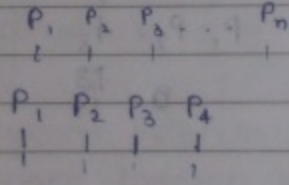 P₁ P₂ P₃ - - - Pₙ
P₁ P₂ P₃ P₄